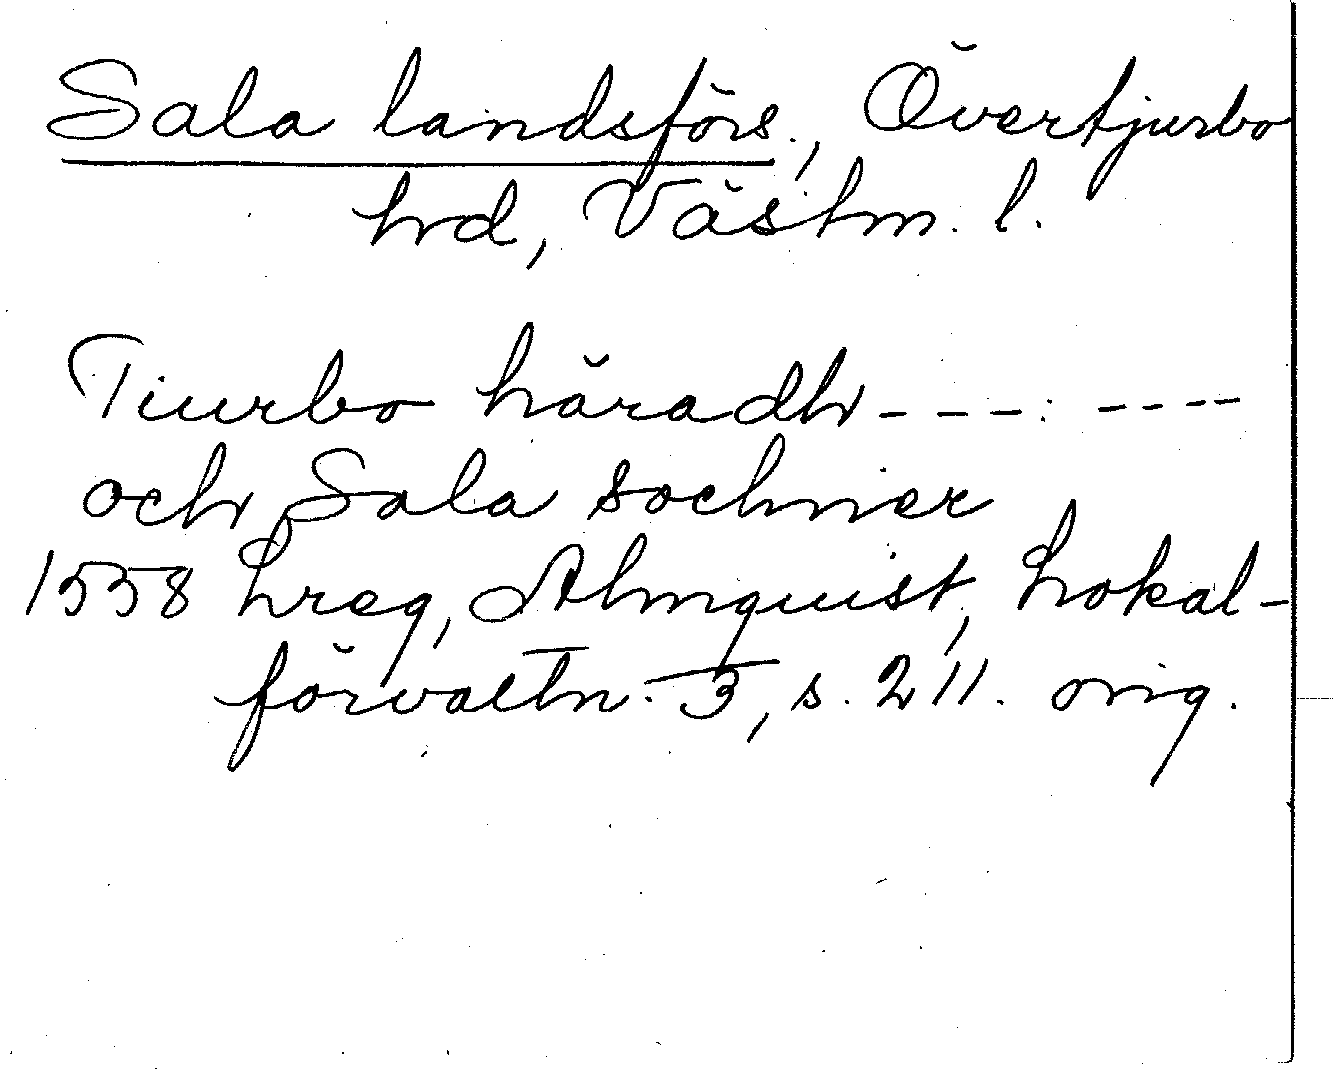 Sala landsförs., Övertjurbo
hrd, Västm. l.
Tiurbo häradh - - - : - - - -
och Sala sochner
1558 Lreg, Almquist, Lokal-
förvaltn. 3, s. 211. orig.